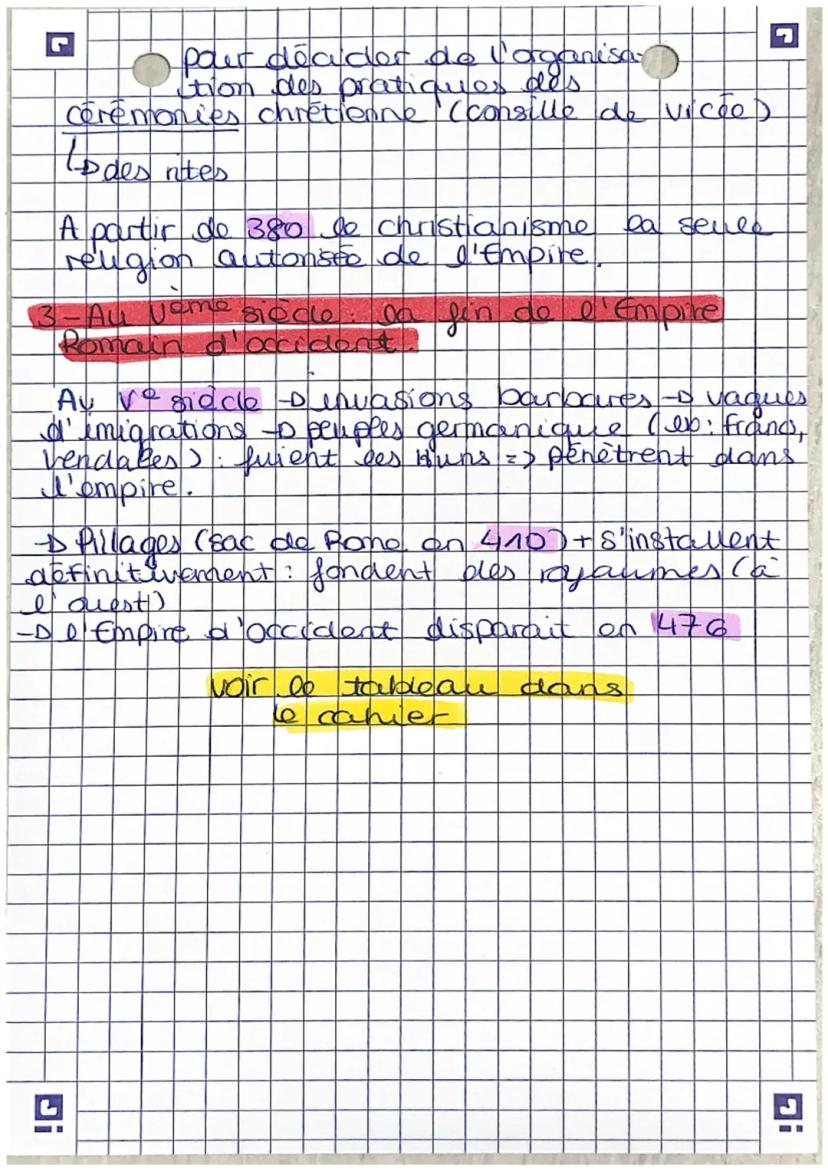 pour décider de l'organisa-
tion des pratiques des
cérémonies chrétienne (consille de vicée)
↳ des rites
A partir de 380 le christianisme la seule
religion autorisée de l'Empire.
3-Au Vème siècle : la fin de l'Empire
Romain d'occident.
Au Ve siècle → invasions barbares → vagues
d'imigrations → peuples germanique (ex: francs,
vendales) : fuient les Huns => pénètrent dans
l'empire.
→ Pillages (sac de Rome en 410) + s'installent
définitivement : fondent des royaumes (à
l'ouest)
→ l'Empire d'occident disparait en 476
voir le tableau dans
le cahier